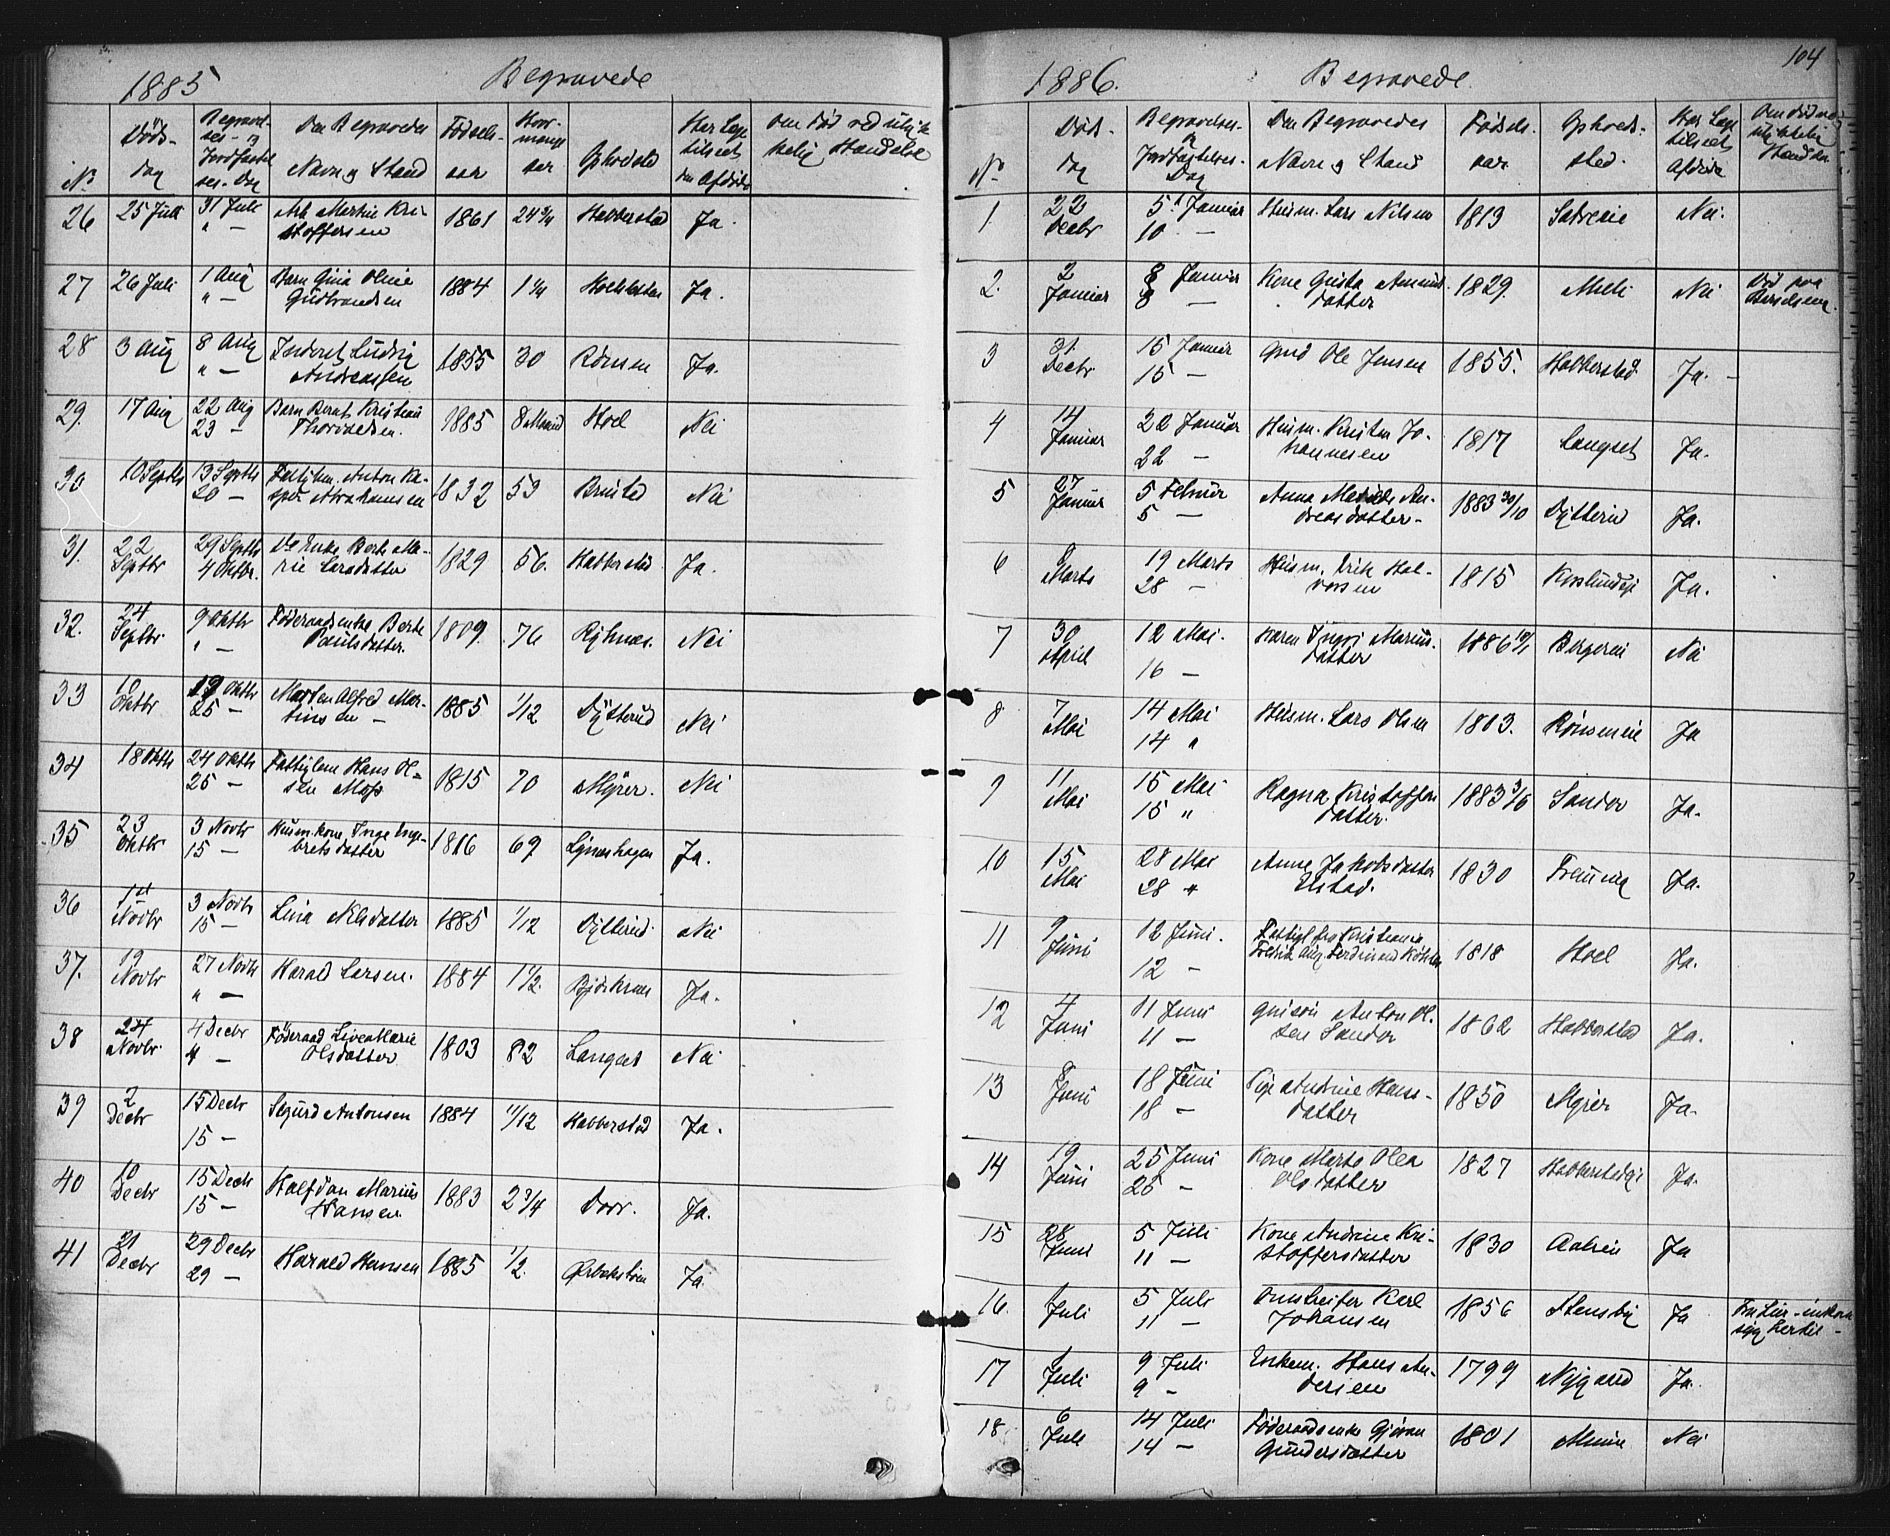 1885
Begravede
No
Døds-
dag
Begravel-
ses- og
Jordfæstel
ses-Dag
Den Begravedes
Navn og Stand
Fødsels-
aar
Hvor-
mange
aar
Opholdssted
Har Læge
tilseet
den Afdøde
Om død ved ulyk
kelig Hændelse
26
25 Juli
31 Juli
" —
Martin Kri-
stoffersen
1861
24 3/4
Habberstad
Ja.
27
26 Juli
1 Aug
" —
Barn Gina Oline
Gudbrandsen
1884
1 1/4
Ja.
28
3 Aug
8 Aug
" —
Inderst Ludvig
Andreassen
1855
30
Rønsen
Ja.
29.
17 Aug
22 Aug
23 —
Barn Bernt Kristian
Thorvaldsen.
1885
8 Maaned
Hoel
Nei
30
10 Septbr
13 Septbr
20 —
Fattiglem. Anton Ka-
sper Abrahamsen
1832
53
Brustad
Nei
31.
22
Septbr
29 Septbr
4 Oktbr.
Enke Berte Ma-
rie Larsdatter
1829
56.
Habberstad
Ja.
32.
24
Septbr
9 Oktbr
" —
Føderaadsenke Berte
Paulsdatter.
1809.
76
Nei
33
10
Oktbr
19 Oktbr
25 —
Morten Alfred Mar-
tinsen —
1885
1/12
Dytterud
Nei
34
18 Oktbr
24 Oktbr
25 —
Fattiglem Hans Ol-
sen Moss
1815
70
Myrer.
Nei
35
23
Oktbr
3 Novbr
15 —
Husm. kone, Inge Inge-
bretsdatter
1816
69
Lynæshagen
Ja.
36
1st
Novbr
3 Novbr
15 —
Lina Nilsdatter
1885
1/12
Dytterud
Nei
37.
19
Novbr
27 Novbr
" —
Harald Larsen.
1884
1 1/2.
Ja.
38
24
Novbr
4 Decbr
4 —
Føderaad Live Marie
Olsdatter
1803
82
Langset
Nei
39
2
Decbr
15 Decbr
15 —
Sigurd Antonsen
1884
11/12
Habberstad
Ja.
40
10
Decbr
15 Decbr
15 —
Halfdan Marius
Hansen
1883
2 3/4
Dorr.
Ja.
41
21
Decbr
29 Decbr
29 —
Harald Hansen
1885
1/2.
Ja
104
1886.
Begravede.
No
Døds-
dag
Begravelses-
&
Jordfæstelses-
Dag
Den Begravedes
Navn og Stand
Fødsels-
aar
Opholds-
sted.
Har Læge
tilseet
Afdøde
Om død ved
ulykkelig
Hændelse
1.
22
Decbr
5 Januar
10 —
Husm. Lars Nilsen
1813
Nei.
2.
2
Januar
8 Januar
8 —
Kone Gusta Amund-
datter
1829.
Nei
Død paa
3
31
Decbr
15 Januar
15 —
Gmd Ole Jensen
1855.
Habberstad
Ja. —
4
14
Januar
22 Januar
22 —
Husm. Kristen Jo-
hannesen
1817
Langset
Ja.
5
27
Januar
5 Februar
5 —
Anna Mathilde An-
dreasdatter —
1883 30/10
Dytterud
Ja.
6
Marts
19 Marts
28 —
Husm. Erik Hal-
vorsen
1815
Ja.
7
30
April
12 Mai.
16 —
Karen Ingvi Marius-
datter
1886 19/1
Nei
8
7
Mai
14 Mai
14 "
Husm. Lars Olsen
1803.
Rønseneie
Ja
9
11
Mai
15 Mai
15 "
Ragna Kristoffer
datter.
1883 3/6
Sandor
Ja.
10
15
Mai
28 Mai
28 "
Anne Jakobsdatter
Elstad.
1830
Ja.
11
9
Juni
12 Juni.
12 —
Fattigl. fra Kristiania
Fredrik Aug. Ferdinand
1818
Hoel
Ja.
12
4
Juni
11 Juni
11 —
Anton Ol-
sen Sandor
1862
Habberstad
Ja.
13
8
Juni
18 Juni
18 —
Pige Andrine Hans-
datter
1850
Myrer
Ja.
14
19
Juni
25 Juni
25 —
Kone Marte Olea
Olsdatter
1827
Ja.
15
28
Juni
5 Juli
11 —
Kone Andrine Kri-
stoffersdatter
1830
Ja
16.
1
Juli
5 Juli
11 —
Karl
Johansen
1856
Stensby
Ja
17
1
Juli
9 Juli
9 —
Enkem. Hans An-
dersen
1799
Nygaard
Ja.
18.
6
Juli
14 Juli
14 —
Føderaadsenke Gjøran
Gundersdatter
1801
Nei